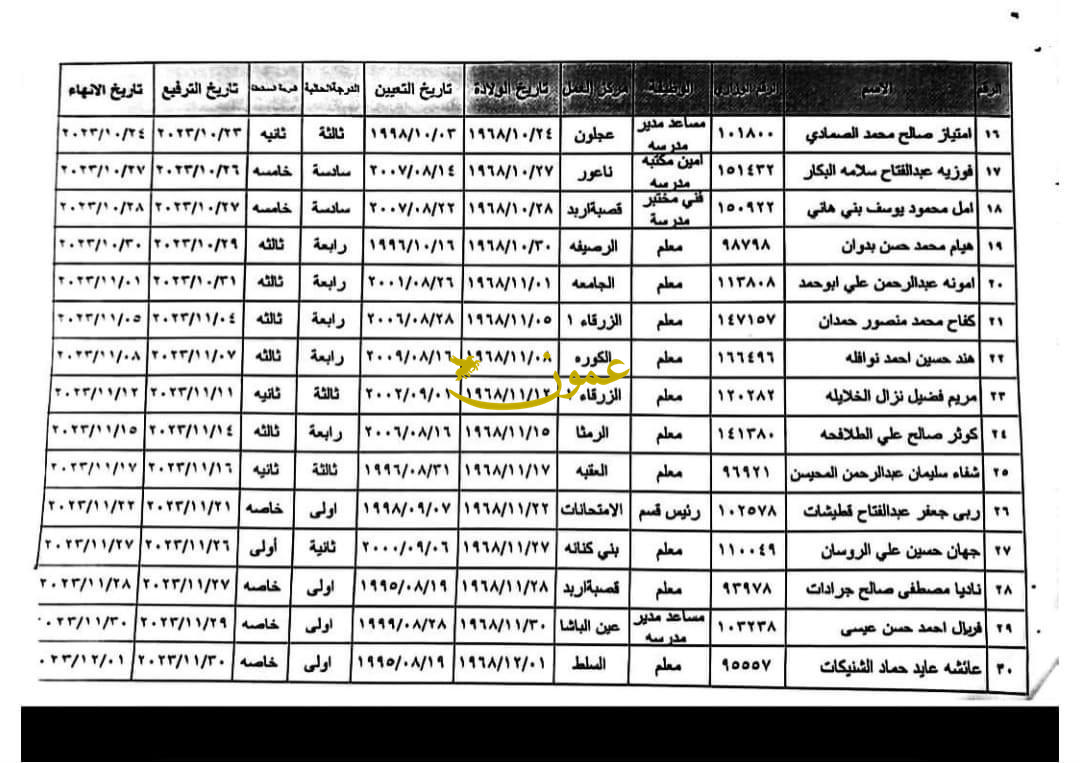 الرقم الاسم الرقم الوزاري الوظيفة مركز العمل تاريخ الولادة تاريخ التعيين الدرجة الحالية تاريخ الترفيع تاريخ الانهاء
١٦ امتياز صالح محمد الصمادي ١٠١٨٠٠ مساعد مدير مدرسه عجلون ١٩٦٨/١٠/٢٤ ١٩٩٨/١٠/٠٣ ثالثة ثانيه ٢٠٢٣/١٠/٢٣ ٢٠٢٣/١٠/٢٤
١٧ فوزيه عبدالفتاح سلامه البكار ١٥١٤٣٢ امين مكتبه مدرسه ناعور ١٩٦٨/١٠/٢٧ ٢٠٠٧/٠٨/١٤ سادسة خامسه ٢٠٢٣/١٠/٢٦ ٢٠٢٣/١٠/٢٧
١٨ امل محمود يوسف بني هاني ١٥٠٩٢٢ فني مختبر مدرسة قصبةاربد ١٩٦٨/١٠/٢٨ ٢٠٠٧/٠٨/٢٢ سادسة خامسه ٢٠٢٣/١٠/٢٧ ٢٠٢٣/١٠/٢٨
١٩ هيام محمد حسن بدوان ٩٨٧٩٨ معلم الرصيفه ١٩٦٨/١٠/٣٠ ١٩٩٦/١٠/١٦ رابعة ثالثه ٢٠٢٣/١٠/٢٩ ٢٠٢٣/١٠/٣٠
٢٠ امونه عبدالرحمن علي ابوحمد ١١٣٨٠٨ معلم الجامعه ١٩٦٨/١١/٠١ ٢٠٠١/٠٨/٢٦ رابعة ثالثه ٢٠٢٣/١٠/٣١ ٢٠٢٣/١١/٠١
٢١ كفاح محمد منصور حمدان ١٤٧١٥٧ معلم الزرقاء ١ ١٩٦٨/١١/٠٥ ٢٠٠٦/٠٨/٢٨ رابعة ثالثه ٢٠٢٣/١١/٠٤ ٢٠٢٣/١١/٠٥
٢٢ هند حسين احمد نوافله ١٦٦٤٩٦ معلم الكوره ١٩٦٨/١١/٠٨ ٢٠٠٩/٠٨/١٦ رابعة ثالثه ٢٠٢٣/١١/٠٧ ٢٠٢٣/١١/٠٨
عمون
٢٣ مريم فضيل نزال الخلايله ١٢٠٢٨٢ معلم الزرقاء ١ ١٩٦٨/١١/١٢ ٢٠٠٢/٠٩/٠١ ثالثة ثانيه ٢٠٢٣/١١/١١ ٢٠٢٣/١١/١٢
٢٤ كوثر صالح علي الطلافحه ١٤١٣٨٠ معلم الرمثا ١٩٦٨/١١/١٥ ٢٠٠٦/٠٨/١٦ رابعة ثالثه ٢٠٢٣/١١/١٤ ٢٠٢٣/١١/١٥
٢٥ شفاء سليمان عبدالرحمن المحيسن ٩٦٩٢١ معلم العقبه ١٩٦٨/١١/١٧ ١٩٩٦/٠٨/٣١ ثالثة ثانيه ٢٠٢٣/١١/١٦ ٢٠٢٣/١١/١٧
٢٦ ربى جعفر عبدالفتاح قطيشات ١٠٢٥٧٨ رئيس قسم الامتحانات ١٩٦٨/١١/٢٢ ١٩٩٨/٠٩/٠٧ اولى خاصه ٢٠٢٣/١١/٢١ ٢٠٢٣/١١/٢٢
٢٧ جهان حسين علي الروسان ١١٠٠٤٩ معلم بني كنانه ١٩٦٨/١١/٢٧ ٢٠٠٠/٠٩/٠٦ ثانية أولى ٢٠٢٣/١١/٢٦ ٢٠٢٣/١١/٢٧
٢٨ ناديا مصطفى صالح جرادات ٩٣٩٧٨ معلم قصبةاربد ١٩٦٨/١١/٢٨ ١٩٩٥/٠٨/١٩ اولى خاصه ٢٠٢٣/١١/٢٧ ٢٠٢٣/١١/٢٨
٢٩ فريال احمد حسن عيسى ١٠٣٢٣٨ مساعد مدير مدرسه عين الباشا ١٩٦٨/١١/٣٠ ١٩٩٩/٠٨/٢٨ اولى خاصه ٢٠٢٣/١١/٢٩ ٠٢٣/١١/٣٠
٣٠ عائشه عايد حماد الشنيكات ٩٥٥٥٧ معلم السلط ١٩٦٨/١٢/٠١ ١٩٩٥/٠٨/١٩ اولى خاصه ٢٠٢٣/١١/٣٠ ٠٢٣/١٢/٠١